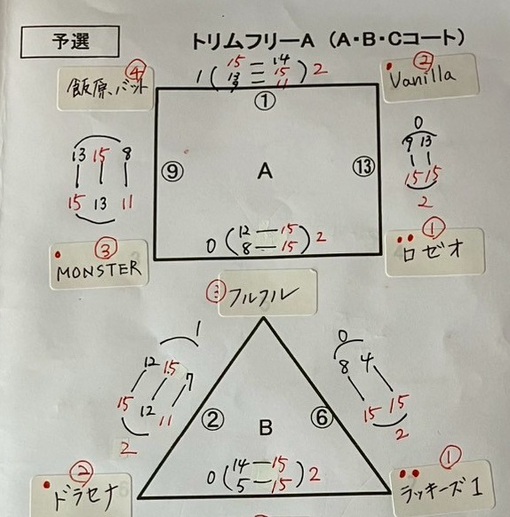 予選
トリムフリーA (A・B・Cコート)
④
飯原バット
1 ( 15 — 14 ) 2
13 — 15
9 — 11
①
②
Vanilla
13 15 8
15 13 11
⑨
A
⑬
0
9 13
15 15
2
③
MONSTER
0 ( 12 — 15 ) 2
8 — 15
①
ロゼオ
③
フルフル
1
12 15 7
15 12 11
2
②
B
⑥
0
8 4
15 15
2
②
ドラセナ
0 ( 14 — 15 ) 2
5 — 15
①
ラッキーズ1